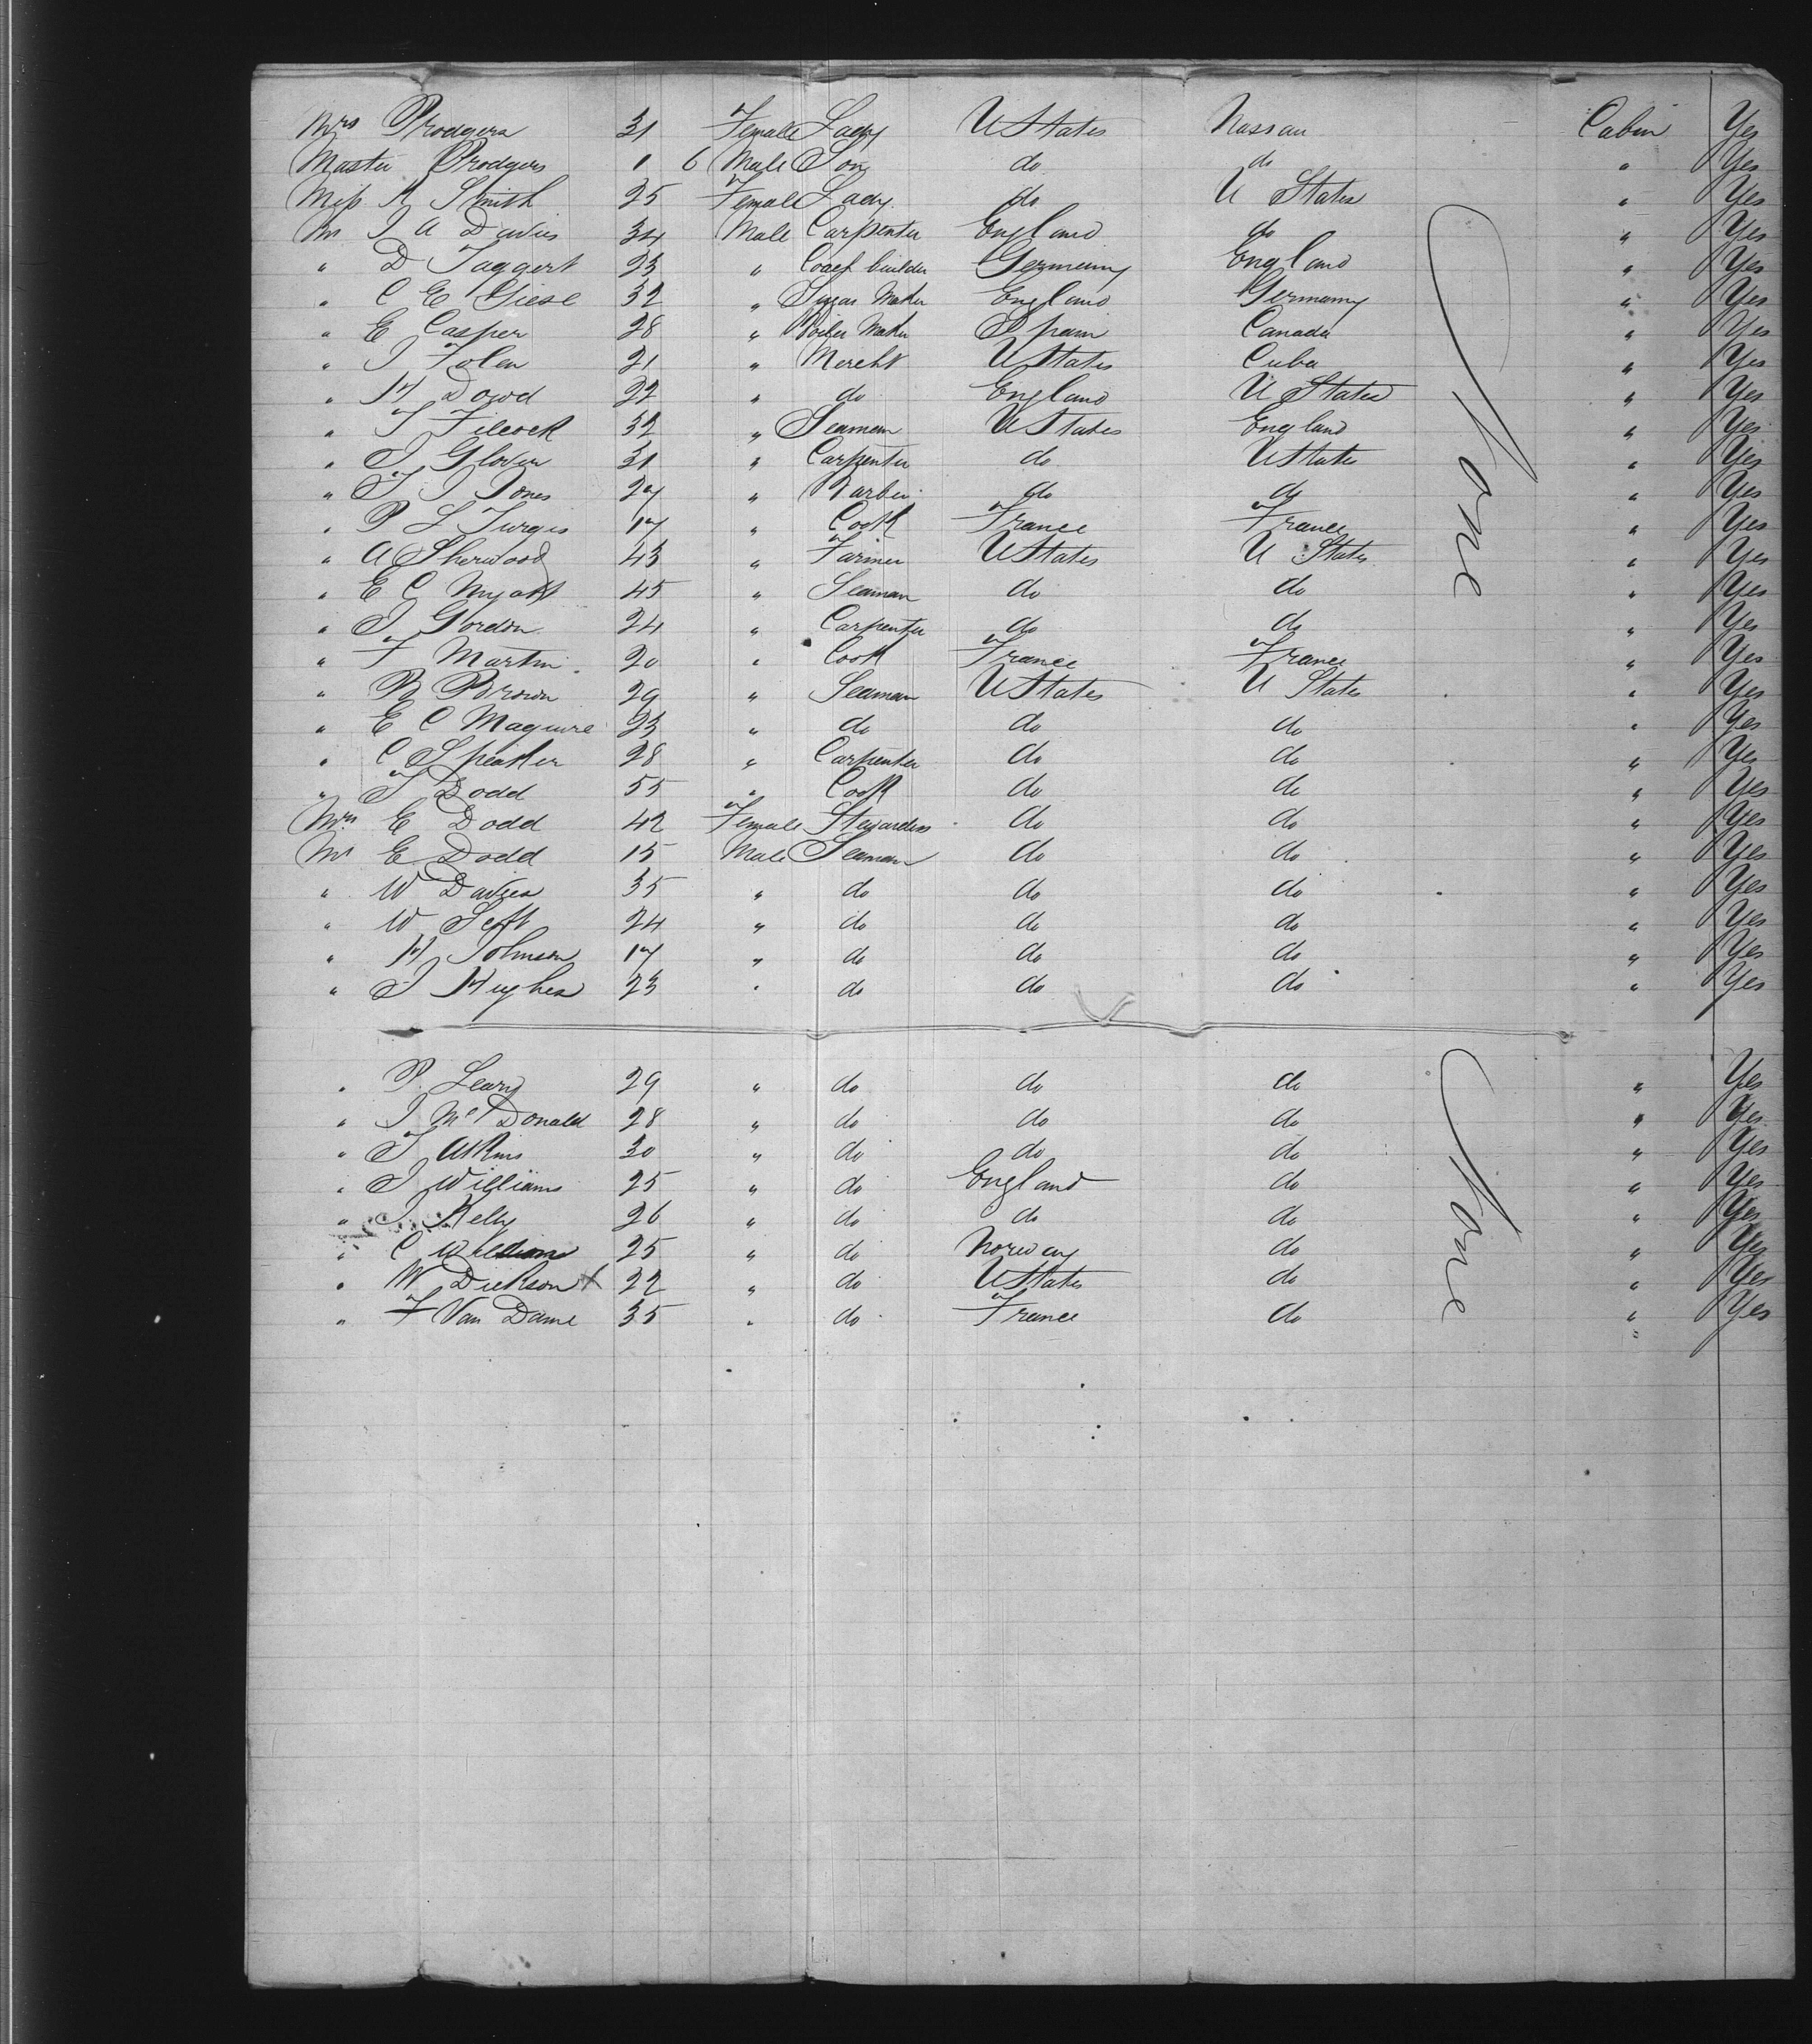 Mrs Prodgers 31 Female Lady U States Nassau Cabin Yes
Master Prodgers 1 6 Male Son do do " Yes
Miss A Smith 25 Female Lady do U States " Yes
Mr J A Davies 34 Male Carpenter England do " Yes
" D Taggert 23 " Coach builder Germany England " Yes
" C E Giese 32 " Sugar Maker England Germany " Yes
" E Casper 28 " Boiler Maker Spain Canada " Yes
" J Tolen 21 " Mercht U States Cuba " Yes
" H Dowd 22 " do England U States " Yes
" T Filcock 32 " Seaman U States England " Yes
" J Glover 31 " Carpenter do U States " Yes
" T J Jones 27 " Barber do do " Yes
" P L Turgis 17 " Cook France France " Yes
" A Sherwood 43 " Farmer U States U States " Yes
" E C Myatt 45 " Seaman do do " Yes
" J Gordon 24 " Carpenter do do " Yes
" F Martin 20 " Cook France France " Yes
" B Brown 29 " Seaman U States U States " Yes
" E C Maguire 23 " do do do " Yes
" C Speaker 28 " Carpenter do do " Yes
" T Dodd 55 " Cook do do " Yes
Mrs E Dodd 42 Female Stewardess do do " Yes
Mr E Dodd 15 Male Seaman do do " Yes
" W Davies 35 " do do do " Yes
" W Seft 24 " do do do " Yes
" H Johnson 17 " do do do " Yes
" J Hughes 23 " do do do " Yes
None
" P Leary 29 " do do do " Yes
" J McDonald 28 " do do do " Yes
" T Atkins 30 " do do do " Yes
" J Williams 25 " do England do " Yes
" J Kelly 26 " do do do " Yes
" C Williams 25 " do Norway do " Yes
" W Dickson X 22 " do U States do " Yes
" F Van Dame 35 " do France do " Yes
None